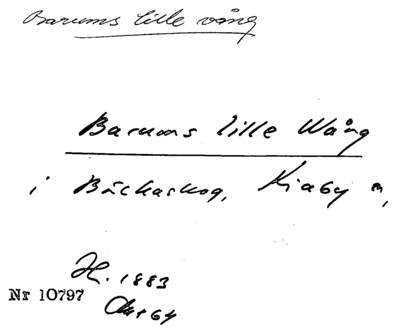 Barums lille vång
Barums lille Wång
i Bäckaskog, Kiaby
H. 1883
Nr 10797